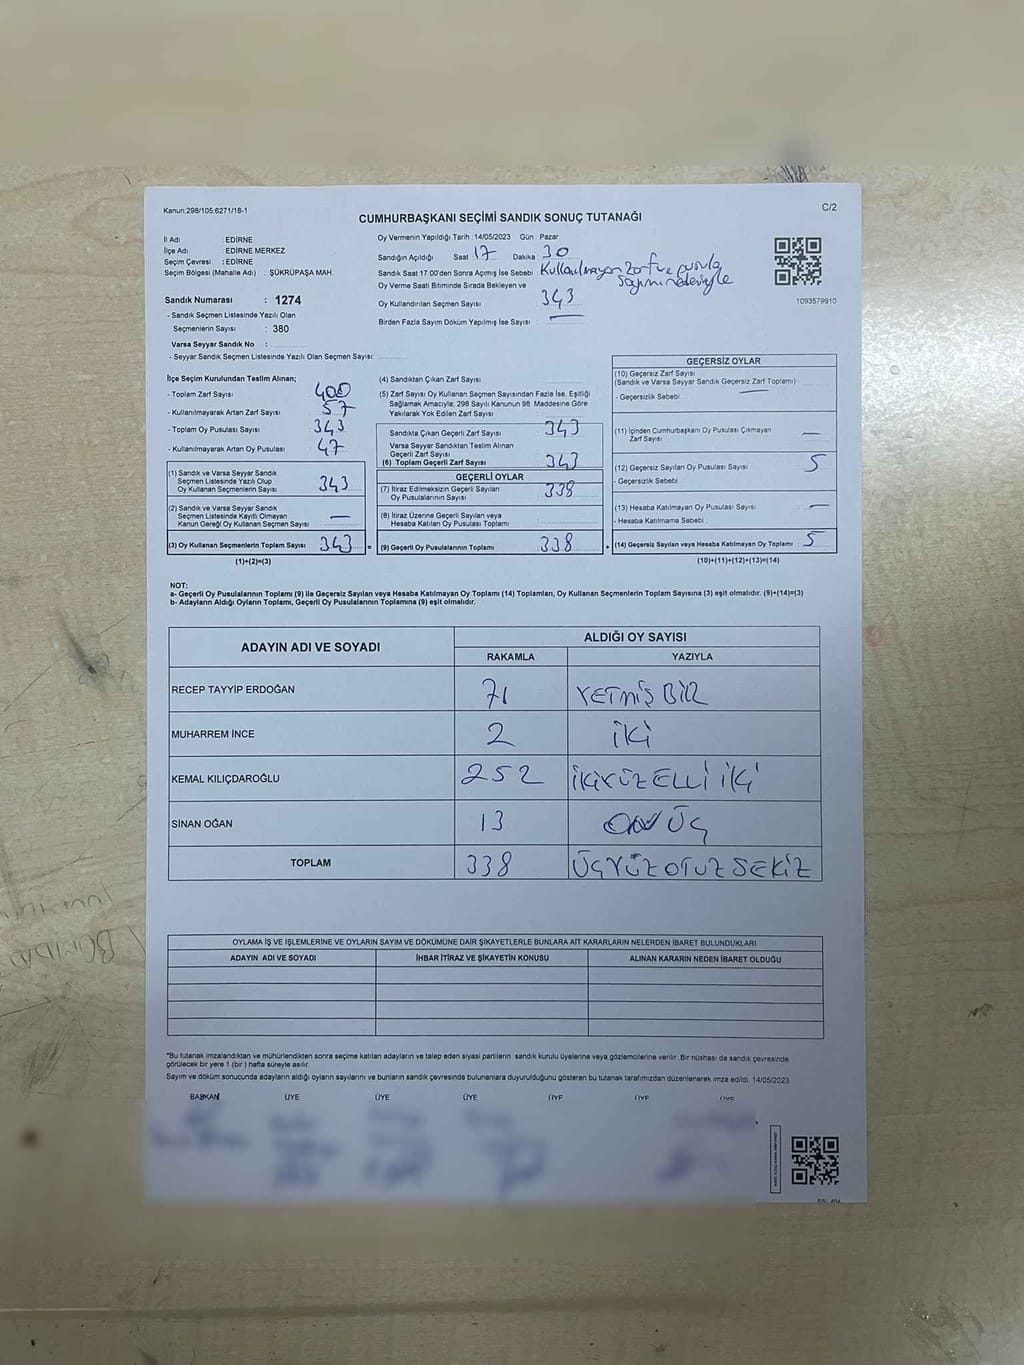 Kanun:298/105;6271/18-1
C/2
CUMHURBAŞKANI SEÇİMİ SANDIK SONUÇ TUTANAĞI
İl Adı : EDİRNE
İlçe Adı : EDİRNE MERKEZ
Seçim Çevresi : EDİRNE
Seçim Bölgesi (Mahalle Adı) : ŞÜKRÜPAŞA MAH.
Sandık Numarası : 1274
- Sandık Seçmen Listesinde Yazılı Olan
Seçmenlerin Sayısı : 380
Varsa Seyyar Sandık No :
- Seyyar Sandık Seçmen Listesinde Yazılı Olan Seçmen Sayısı:
Oy Vermenin Yapıldığı Tarih :14/05/2023 Gün : Pazar
Sandığın Açıldığı Saat 17 Dakika 30
Sandık Saat 17:00'den Sonra Açımış İse Sebebi Kullanılmayan Zarf ve pusula
sayımı nedeniyle
Oy Verme Saati Bitiminde Sırada Bekleyen ve
Oy Kullandırılan Seçmen Sayısı 343
Birden Fazla Sayım Döküm Yapılmış İse Sayısı
1093579910
İlçe Seçim Kurulundan Teslim Alınan;
- Toplam Zarf Sayısı 400
- Kullanılmayarak Artan Zarf Sayısı 57
- Toplam Oy Pusulası Sayısı 343
- Kullanılmayarak Artan Oy Pusulası 47
(1) Sandık ve Varsa Seyyar Sandık
Seçmen Listesinde Yazılı Olup
Oy Kullanan Seçmenlerin Sayısı 343
(2) Sandık ve Varsa Seyyar Sandık
Seçmen Listesinde Kayıtlı Olmayan
Kanun Gereği Oy Kullanan Seçmen Sayısı —
(3) Oy Kullanan Seçmenlerin Toplam Sayısı 343 =
(1)+(2)=(3)
(4) Sandıktan Çıkan Zarf Sayısı
(5) Zarf Sayısı Oy Kullanan Seçmen Sayısından Fazla İse, Eşitliği
Sağlamak Amacıyla, 298 Sayılı Kanunun 98. Maddesine Göre
Yakılarak Yok Edilen Zarf Sayısı
Sandıkta Çıkan Geçerli Zarf Sayısı 343
Varsa Seyyar Sandıktan Teslim Alınan
Geçerli Zarf Sayısı
(6) Toplam Geçerli Zarf Sayısı 343
GEÇERLİ OYLAR
(7) İtiraz Edilmeksizin Geçerli Sayılan
Oy Pusulalarının Sayısı 338
(8) İtiraz Üzerine Geçerli Sayılan veya
Hesaba Katılan Oy Pusulası Toplamı
(9) Geçerli Oy Pusulalarının Toplamı 338 +
GEÇERSİZ OYLAR
(10) Geçersiz Zarf Sayısı
(Sandık ve Varsa Seyyar Sandık Geçersiz Zarf Toplamı) —
- Geçersizlik Sebebi
(11) İçinden Cumhurbaşkanı Oy Pusulası Çıkmayan
Zarf Sayısı —
(12) Geçersiz Sayılan Oy Pusulası Sayısı 5
- Geçersizlik Sebebi
(13) Hesaba Katılmayan Oy Pusulası Sayısı —
- Hesaba Katılmama Sebebi
(14) Geçersiz Sayılan veya Hesaba Katılmayan Oy Toplamı 5
(10)+(11)+(12)+(13)=(14)
NOT:
a- Geçerli Oy Pusulalarının Toplamı (9) ile Geçersiz Sayılan veya Hesaba Katılmayan Oy Toplamı (14) Toplamları, Oy Kullanan Seçmenlerin Toplam Sayısına (3) eşit olmalıdır. (9)+(14)=(3)
b- Adayların Aldığı Oyların Toplamı, Geçerli Oy Pusulalarının Toplamına (9) eşit olmalıdır.
ADAYIN ADI VE SOYADI
ALDIĞI OY SAYISI
RAKAMLA YAZIYLA
RECEP TAYYİP ERDOĞAN 71 YETMİŞ BİR
MUHARREM İNCE 2 İKİ
KEMAL KILIÇDAROĞLU 252 İKİYÜZ ELLİ İKİ
SİNAN OĞAN 13 ON ÜÇ
TOPLAM 338 ÜÇYÜZ OTUZ SEKİZ
OYLAMA İŞ VE İŞLEMLERİNE VE OYLARIN SAYIM VE DÖKÜMÜNE DAİR ŞİKAYETLERLE BUNLARA AİT KARARLARIN NELERDEN İBARET BULUNDUKLARI
ADAYIN ADI VE SOYADI İHBAR İTİRAZ VE ŞİKAYETİN KONUSU ALINAN KARARIN NEDEN İBARET OLDUĞU
*Bu tutanak imzalandıktan ve mühürlendikten sonra seçime katılan adayların ve talep eden siyasi partilerin sandık kurulu üyelerine veya gözlemcilerine verilir .Bir nüshası da sandık çevresinde
görülecek bir yere 1 (bir ) hafta süreyle asılır.
Sayım ve döküm sonucunda adayların aldığı oyların sayılarını ve bunların sandık çevresinde bulunanlara duyurulduğunu gösteren bu tutanak tarafımızdan düzenlenerek imza edildi. 14/05/2023
BAŞKAN ÜYE ÜYE ÜYE ÜYE ÜYE ÜYE